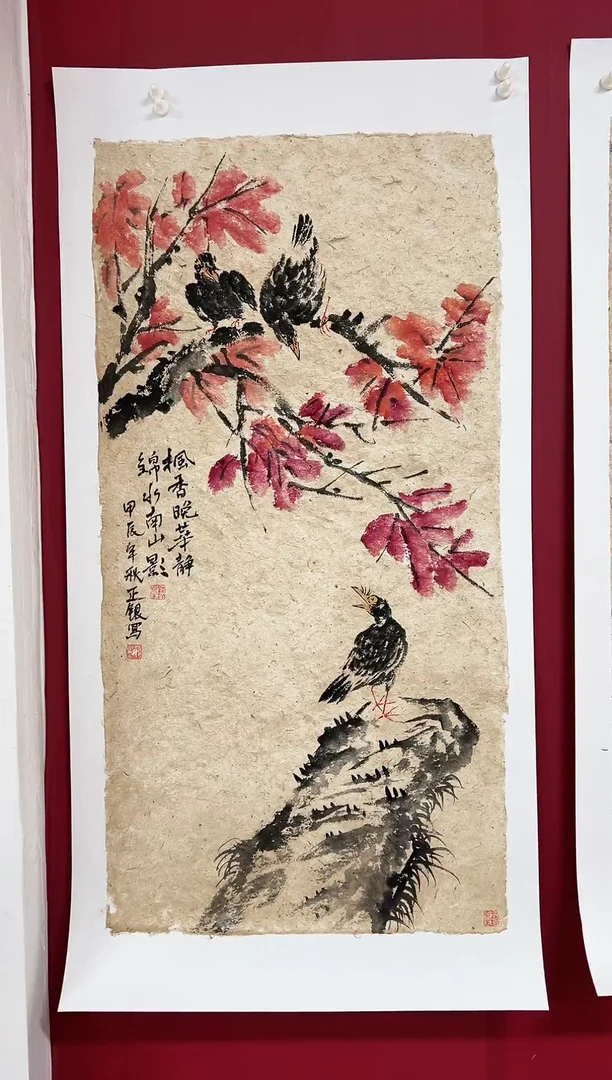 楓香晚華静
錦水南山影
甲辰年秋正銀寫